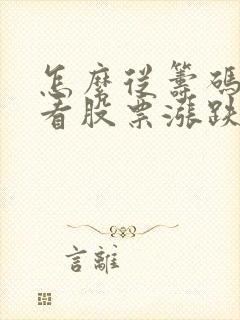 怎麼從籌碼
看股票漲跌
言離